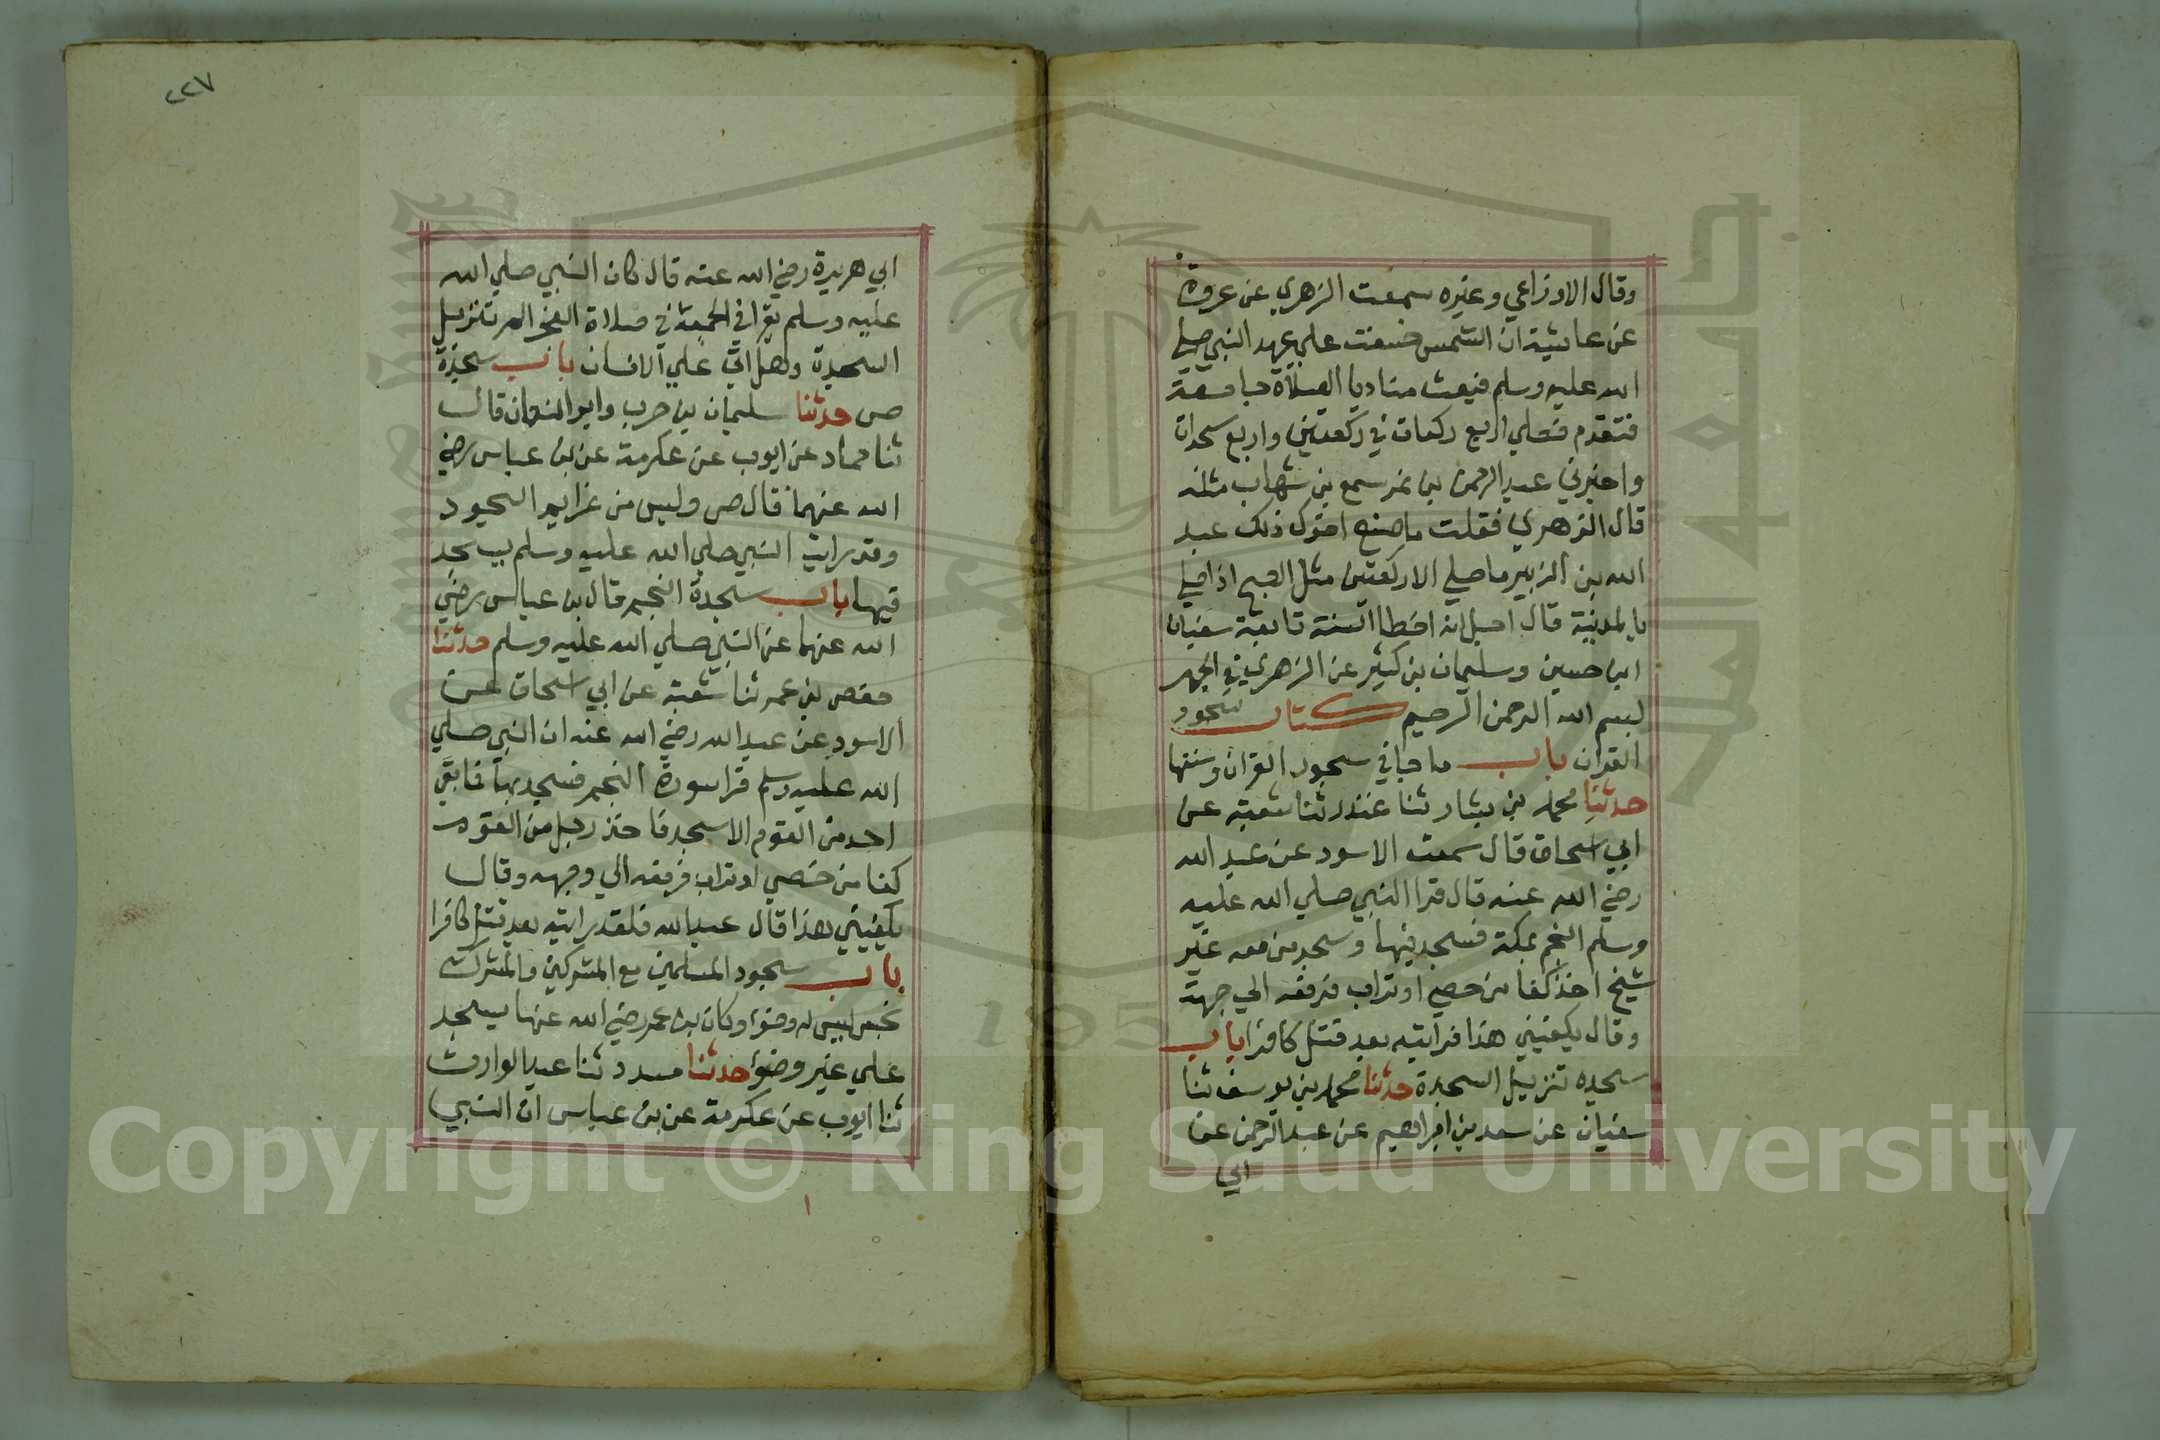 وقال الاوزاعي وغيره سمعت الزهري عن عروة
عن عائشة ان الشمس خسفت علي عهد النبي صلي
الله عليه وسلم فبعث مناديا الصلاة جامعة
فتقدم فصلي اربع ركعات في ركعتين واربع سجدات
واخبرني عبد الرحمن بن نمر سمع بن شهاب مثله
قال الزهري فقلت ما صنع اخوك ذلك عبد
الله بن الزبير ما صلي الا ركعتين مثل الصبح اذا صلي
بالمدينة قال اجل انه اخطا السنة تابعة سفيان
ابن حسين وسليمان بن كثير عن الزهري في الجهر
بسم الله الرحمن الرحيم كتاب سجود
القران باب ما جا في سجود القران وسنتها
حدثنا محمد بن بشار ثنا غندر ثنا شعبة عن
ابي اسحاق قال سمعت الاسود عن عبد الله
رضي الله عنه قال قرا النبي صلي الله عليه
وسلم النجم بمكة فسجد فيها وسجد من معه غير
شيخ اخذ كفا من حصي او تراب فرفعه الي جبهته
وقال يكفيني هذا فرايته بعد قتل كافرا باب
سجده تنزيل السجدة حدثنا محمد بن يوسف ثنا
سفيان عن سعد بن ابراهيم عن عبد الرحمن عن
ابي
٢٢٧
ابي هريرة رضي الله عنه قال كان النبي صلي الله
عليه وسلم يقرا في الجمعة في صلاة الفجر الم تنزيل
السجدة وهل اتي علي الانسان باب سجدة
ص حدثنا سليمان بن حرب وابو النعمان قال
ثنا حماد عن ايوب عن عكرمة عن بن عباس رضي
الله عنهما قال ص وليس من عزايم السجود
وقد رايت النبي صلي الله عليه وسلم يسجد
فيها باب سجدة النجم قال بن عباس رضي
الله عنهما عن النبي صلي الله عليه وسلم حدثنا
حفص بن عمر ثنا شعبة عن ابي اسحاق عن
الاسود عن عبد الله رضي الله عنه ان النبي صلي
الله عليه وسلم قرا سورة النجم فسجد بها فابقي
احد من القوم الا سجد فاخذ رجل من القوم
كفا من حصي او تراب فرفعه الي وجهه وقال
يكفيني هذا قال عبد الله فلقد رايته بعد قتل كافرا
باب سجود المسلمين مع المشركين والمشرك
نجس ليس له وضوء وكان بن عمر رضي الله عنهما يسجد
علي غير وضوء حدثنا مسدد ثنا عبد الوارث
ثنا ايوب عن عكرمة عن بن عباس ان النبي
Copyright © King Saud University